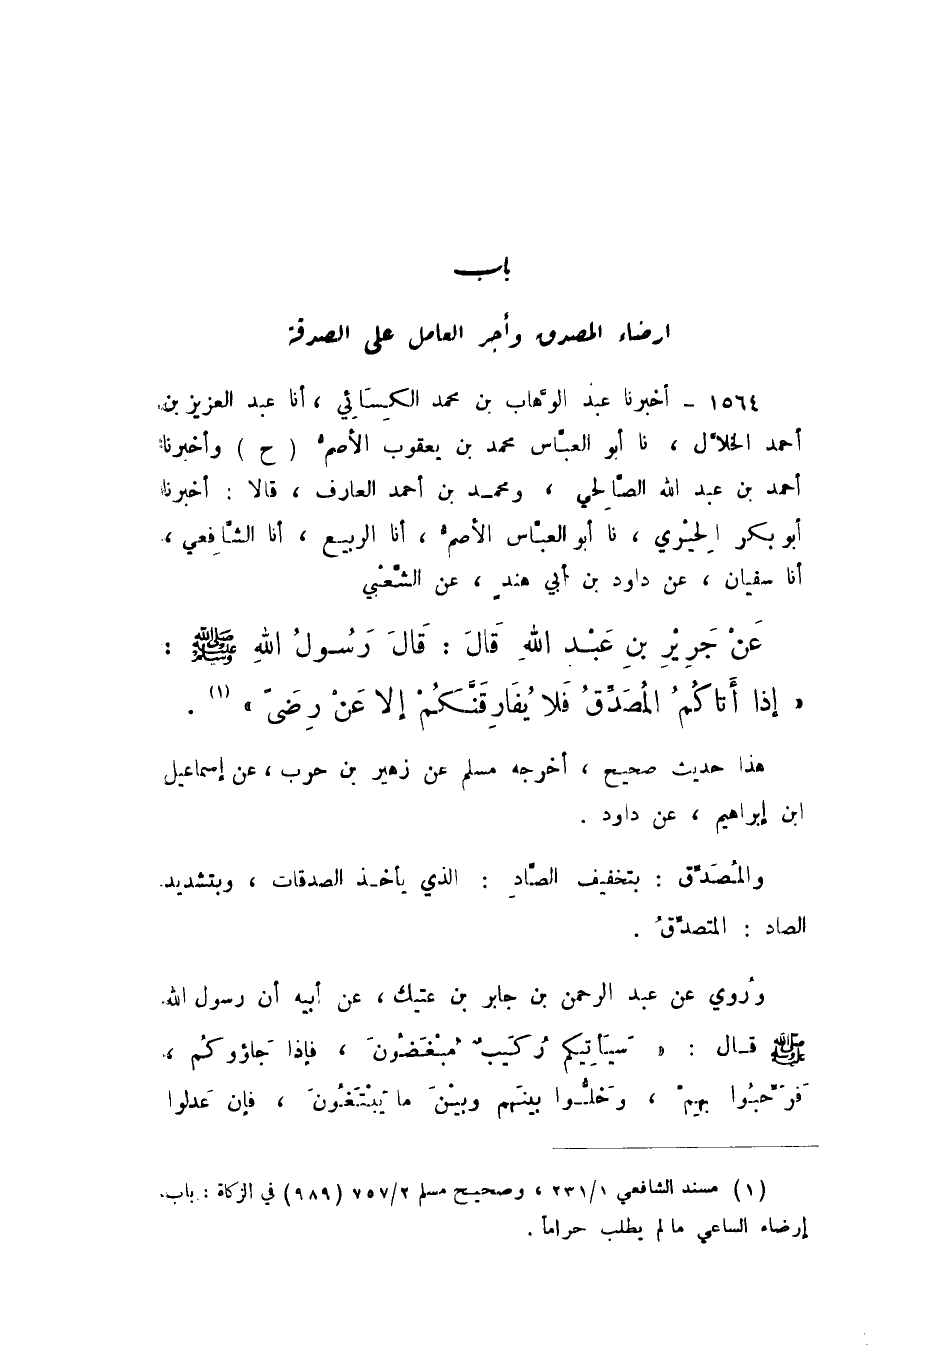 باب
ارضاء المصدق وأجر العامل على الصدقة
١٥٦٤ – أخبرنا عبد الوهّاب بن محمد الكِسَائي ، أنا عبد العزيز بن
أحمد الخلاّل ، نا أبو العبّاس محمد بن يعقوب الأصمُّ ( ح ) وأخبرنا
أحمد بن عبد الله الصّالحي ، ومحمـد بن أحمد العارف ، قالا : أخبرنا
أبو بكر الحِيْري ، نا أبو العبّاس الأصمُّ ، أنا الربيـع ، أنا الشّافعي ،
أنا سفيان ، عن داود بن أبي هندٍ ، عن الشّعْبي
عَنْ جَرِيْرِ بنِ عَبْـدِ اللهِ قَالَ : قَالَ رَسُـولُ اللهِ ﷺ :
« إذا أَتاكُمُ المُصَدِّقُ فَلا يُفَارِقَنَّـكُمْ إلا عَنْ رِضَىً » (١) .
هذا حديث صحيح ، أخرجه مسلم عن زهير بن حرب ، عن إسماعيل
ابن إبراهيم ، عن داود .
والمُصَدِّق : بتخفيف الصّادِ : الذي يأخـذ الصدقات ، وبتشديد
الصاد : المتصدِّقُ .
ورُوي عن عبد الرحمن بن جابر بن عتيك ، عن أبيه أن رسول الله
ﷺ قـال : « سَيَأتِيكم رُكَيبٌ مُبْغَضُونَ ، فإذا جَاؤوكُم ،
فَرَحِّبُوا بهِمْ ، وخَلُّـوا بينَهم وبيْنَ ما يَبْتَغُونَ ، فإن عَدلوا
(١) مسند الشافعي ٢٣١/١ ، وصحيـح مسلم ٧٥٧/٢ (٩٨٩) في الزكاة : باب
إرضاء الساعي ما لم يطلب حراماً .